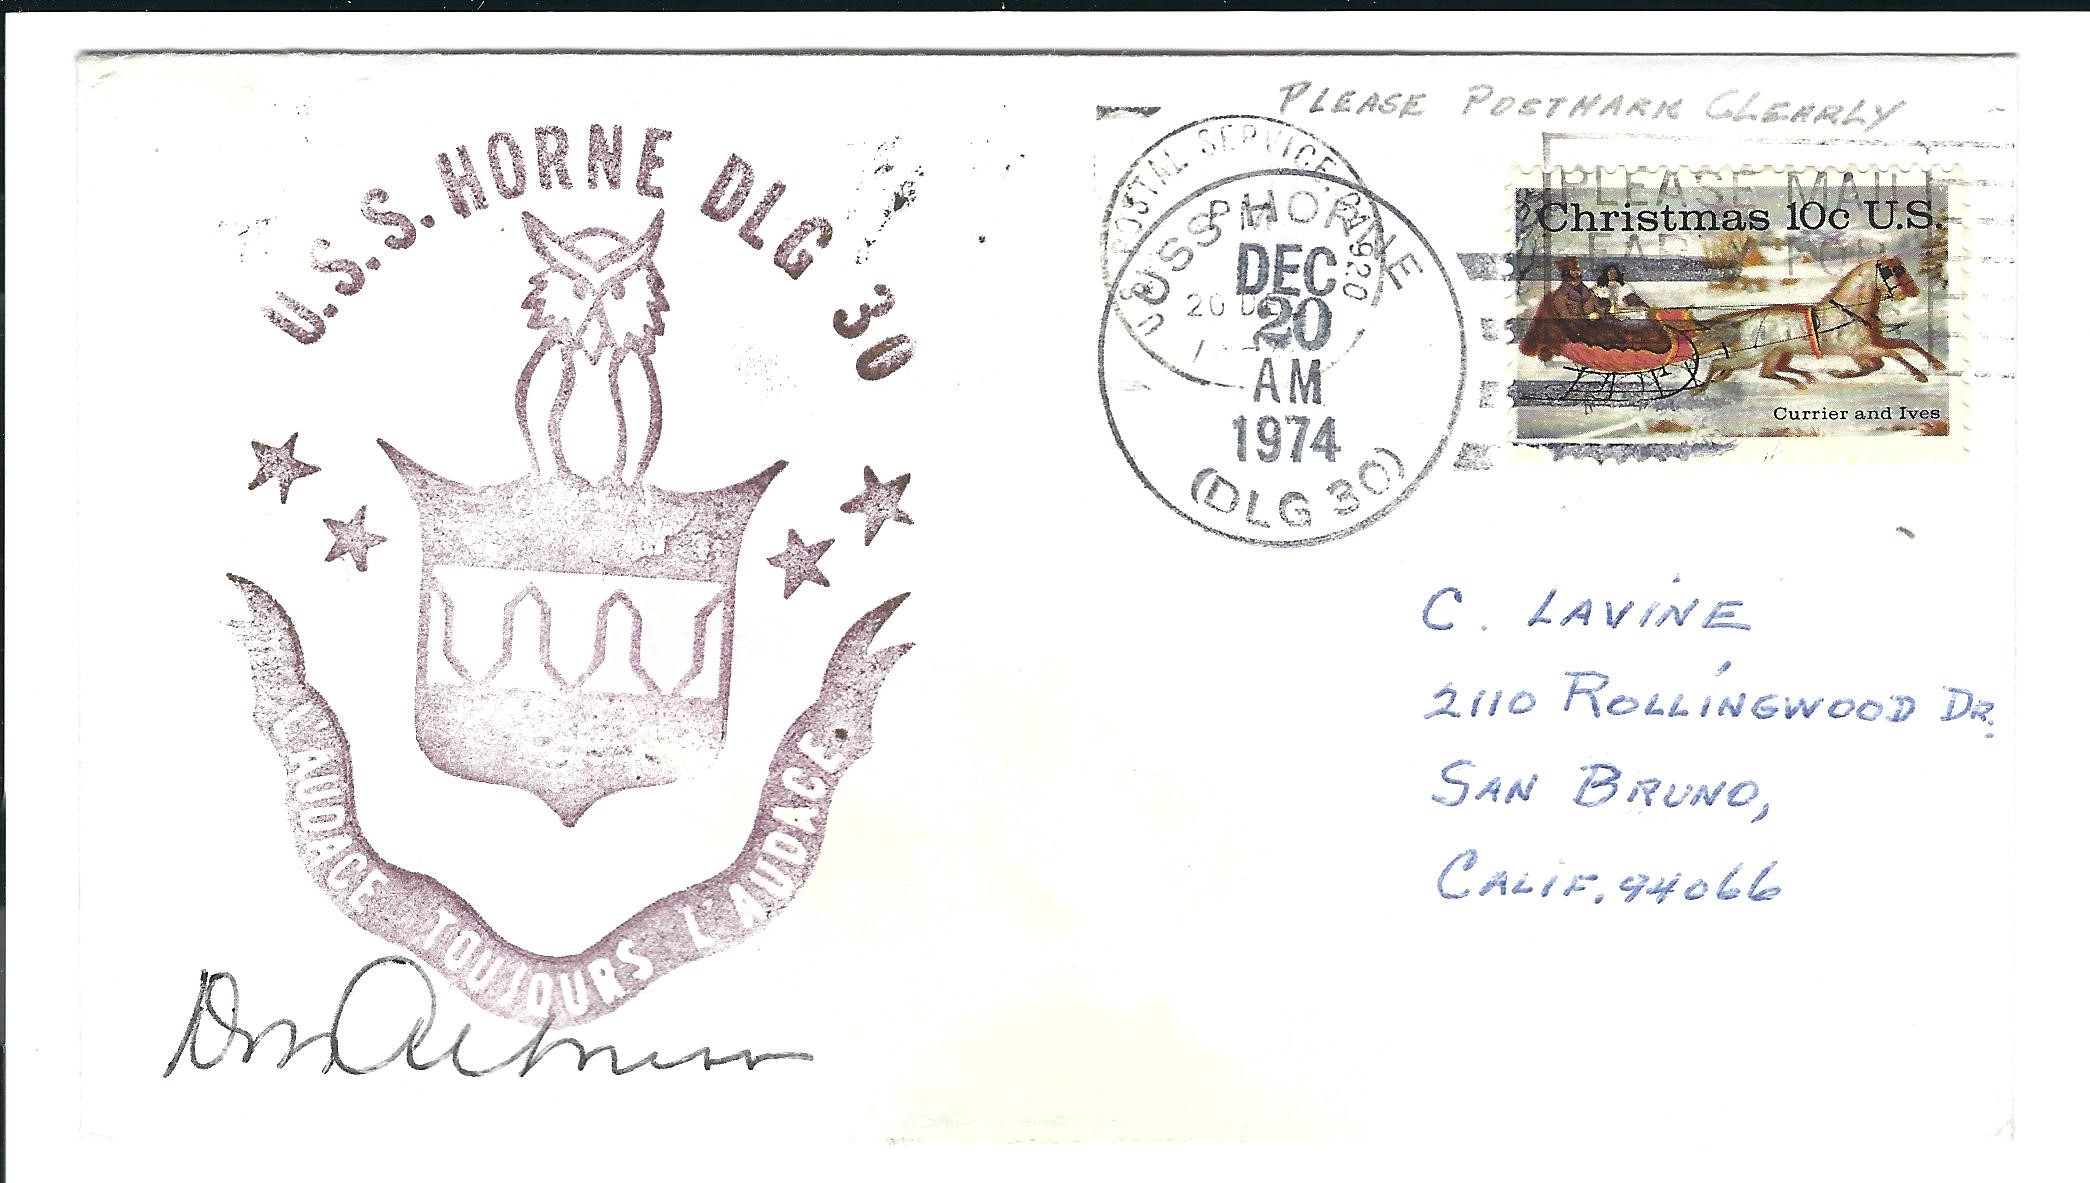 PLEASE POSTMARK CLEARLY
U.S.S. HORNE DLG 30
POSTAL SERVICE CA 920
USS HORNE
DEC
20
AM
1974
(DLG 30)
PLEASE MAIL
EARLY FOR
Christmas 10c U.S.
Currier and Ives
L'AUDACE - TOUJOURS L'AUDACE
C. LAVINE
2110 ROLLINGWOOD DR.
SAN BRUNO,
CALIF. 94066